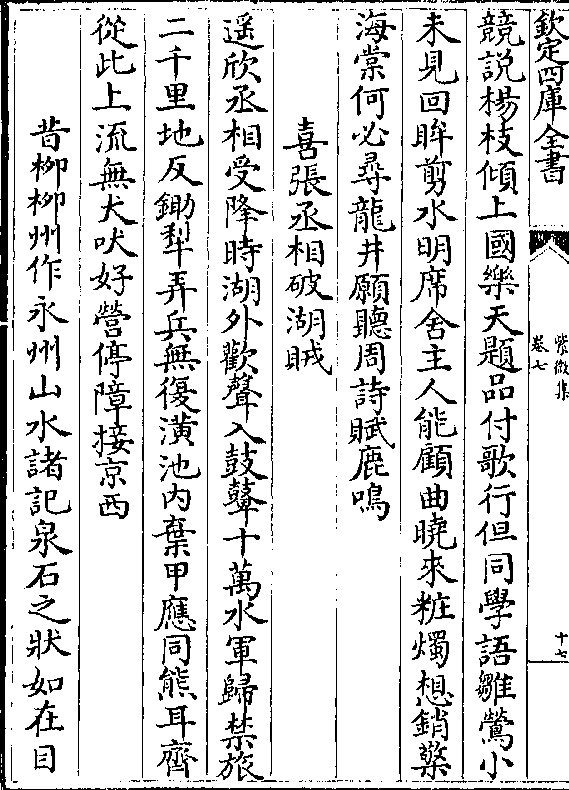 欽定四庫全書
紫微集
卷七
十七
競說楊枝傾上國樂天題品付歌行但同學語雛鶯小
未見回眸剪水明席舍主人能顧曲曉來粧燭想銷檠
海棠何必尋龍井願聽周詩賦鹿鳴
喜張丞相破湖賊
遥欣丞相受降時湖外歡聲入鼓鼙十萬水軍歸禁旅
二千里地反鋤犁弄兵無復潢池内棄甲應同熊耳齊
從此上流無犬吠好營停障接京西
昔柳柳州作永州山水諸記泉石之狀如在目